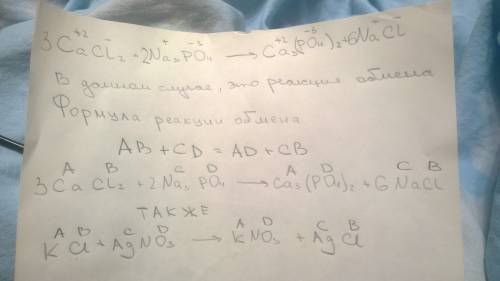 3CaCl₂ + 2Na₃PO₄ → Ca₃(PO₄)₂ + 6NaCl
В данном случае, это реакция обмена
Формула реакции обмена
AB + CD = AD + CB
3CaCl₂ + 2Na₃PO₄ → Ca₃(PO₄)₂ + 6NaCl
ТАКЖЕ
KCl + AgNO₃ → KNO₃ + AgCl